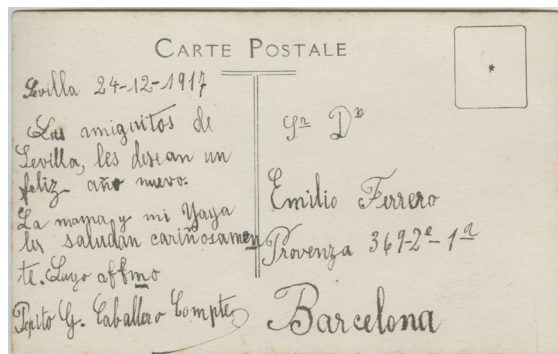 CARTE POSTALE
Sevilla 24-12-1917
Las amiguitos de
Sevilla, les desean un
feliz año nuevo.
La mama y mi Yaya
les saludan cariñosamen
te. Suyo affmo
Pepito G. Caballero Compte
Sr Dn
Emilio Ferrero
Provenza 369-2º-1ª
Barcelona